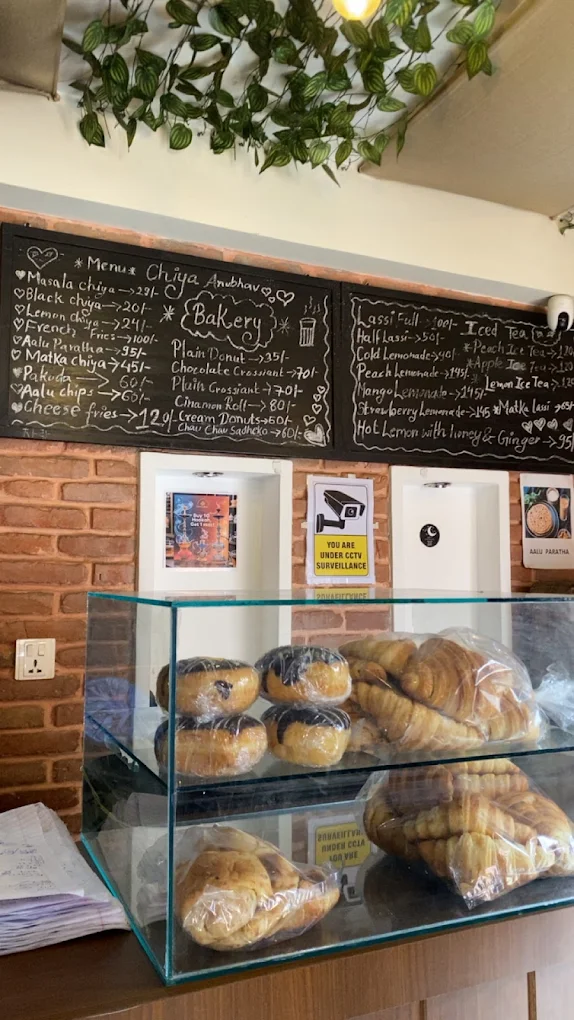 *Menu* Chiya Anubhav
Masala chiya → 29/-
Black chiya → 20/-
Lemon chiya → 24/-
French fries → 100/-
Aalu Paratha → 95/-
Matka chiya → 45/-
Pakuda → 60/-
Aalu chips → 60/-
Cheese fries → 120/-
*Bakery*
Plain Donut → 35/-
Chocolate Crossiant → 70/-
Plain Crossiant → 70/-
Cinamon Roll → 80/-
Cream Donuts → 60/-
Chau Chau Sadheko → 60/-
Lassi Full → 100/-
Half Lassi → 50/-
Cold Lemonade → 40/-
Peach Lemonade → 145/-
Mango Lemonade → 145/-
Strawberry Lemonade → 145
Hot Lemon with honey & Ginger → 95/-
Iced Tea
*Peach Ice Tea → 120
*Apple Ice Tea → 120
Lemon Ice Tea → 125
*Matka lassi → 65/-
YOU ARE
UNDER CCTV
SURVEILLANCE
AALU PARATHA